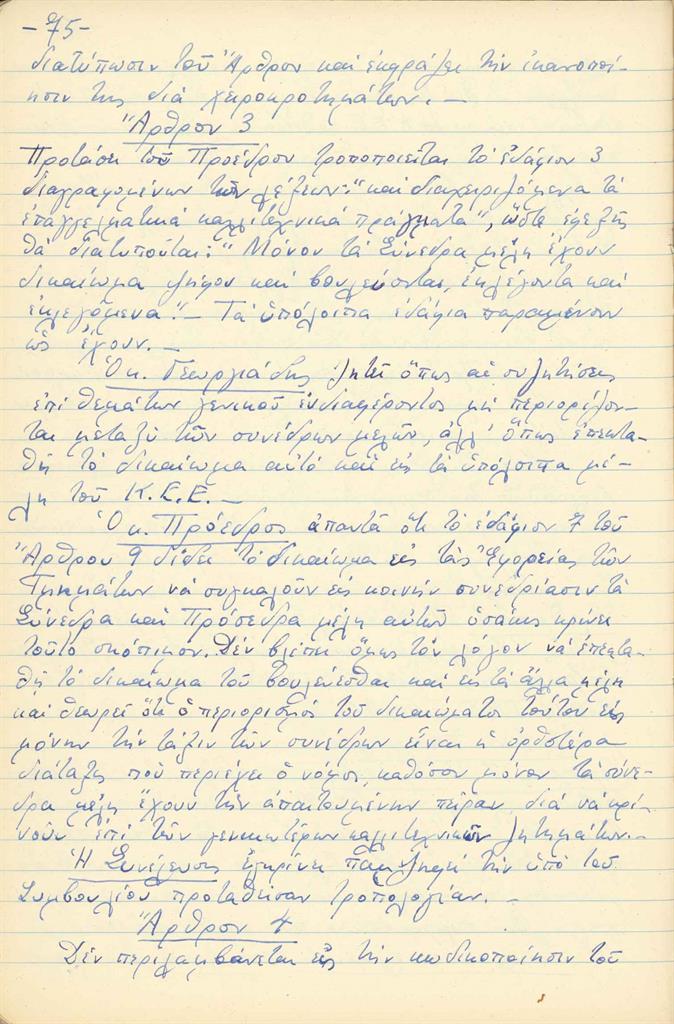 -75-
διατύπωσιν τοῦ Ἄρθρου καί ἐκφράζει τήν ἱκανοποί-
ησίν της διά χειροκροτημάτων.-
Ἄρθρον 3
Προτάσει τοῦ Προέδρου τροποποιεῖται τό ἐδάφιον 3
διαγραφομένων τῶν λέξεων: "καί διαχειριζόμενα τά
ἐπαγγελματικά καλλιτεχνικά πράγματα", ὥστε ἐφεξῆς
θά διατυποῦται: "Μόνον τά Σύνεδρα μέλη ἔχουν
δικαίωμα ψήφου καί βουλεύονται, ἐκλέγοντα καί
ἐκλεγόμενα".- Τά ὑπόλοιπα ἐδάφια παραμένουν
ὡς ἔχουν.-
Ὁ κ. Γεωργιάδης ζητεῖ ὅπως αἱ συζητήσεις
ἐπί θεμάτων γενικοῦ ἐνδιαφέροντος μή περιορίζον-
ται μεταξύ τῶν συνέδρων μελῶν, ἀλλ' ὅπως ἐπεκτα-
θῇ τό δικαίωμα αὐτό καί εἰς τά ὑπόλοιπα μέ-
λη τοῦ Κ.Ε.Ε.-
Ὁ κ. Πρόεδρος ἀπαντᾶ ὅτι τό ἐδάφιον 7 τοῦ
Ἄρθρου 9 δίδει τό δικαίωμα εἰς τάς Ἐφορείας τῶν
Τμημάτων νά συγκαλοῦν εἰς κοινήν συνεδρίασιν τά
Σύνεδρα καί Πρόσεδρα μέλη αὐτῶν ὁσάκις κρίνει
τοῦτο σκόπιμον. Δέν βλέπει ὅμως τόν λόγον νά ἐπεκτα-
θῇ τό δικαίωμα τοῦ βουλεύεσθαι καί εἰς τά ἄλλα μέλη
καί θεωρεῖ ὅτι ὁ περιορισμός τοῦ δικαιώματος τούτου εἰς
μόνην τήν τάξιν τῶν συνέδρων εἶναι ἡ ὀρθοτέρα
διάταξις πού περιέχει ὁ νόμος, καθόσον μόνον τά σύνε-
δρα μέλη ἔχουν τήν ἀπαιτουμένην πεῖραν διά νά κρί-
νουν ἐπί τῶν γενικωτέρων καλλιτεχνικῶν ζητημάτων.-
Ἡ Συνέλευσις ἐγκρίνει παμψηφεί τήν ὑπό τοῦ
Συμβουλίου προταθεῖσαν τροπολογίαν.-
Ἄρθρον 4
Δέν περιλαμβάνεται εἰς τήν κωδικοποίησιν τοῦ